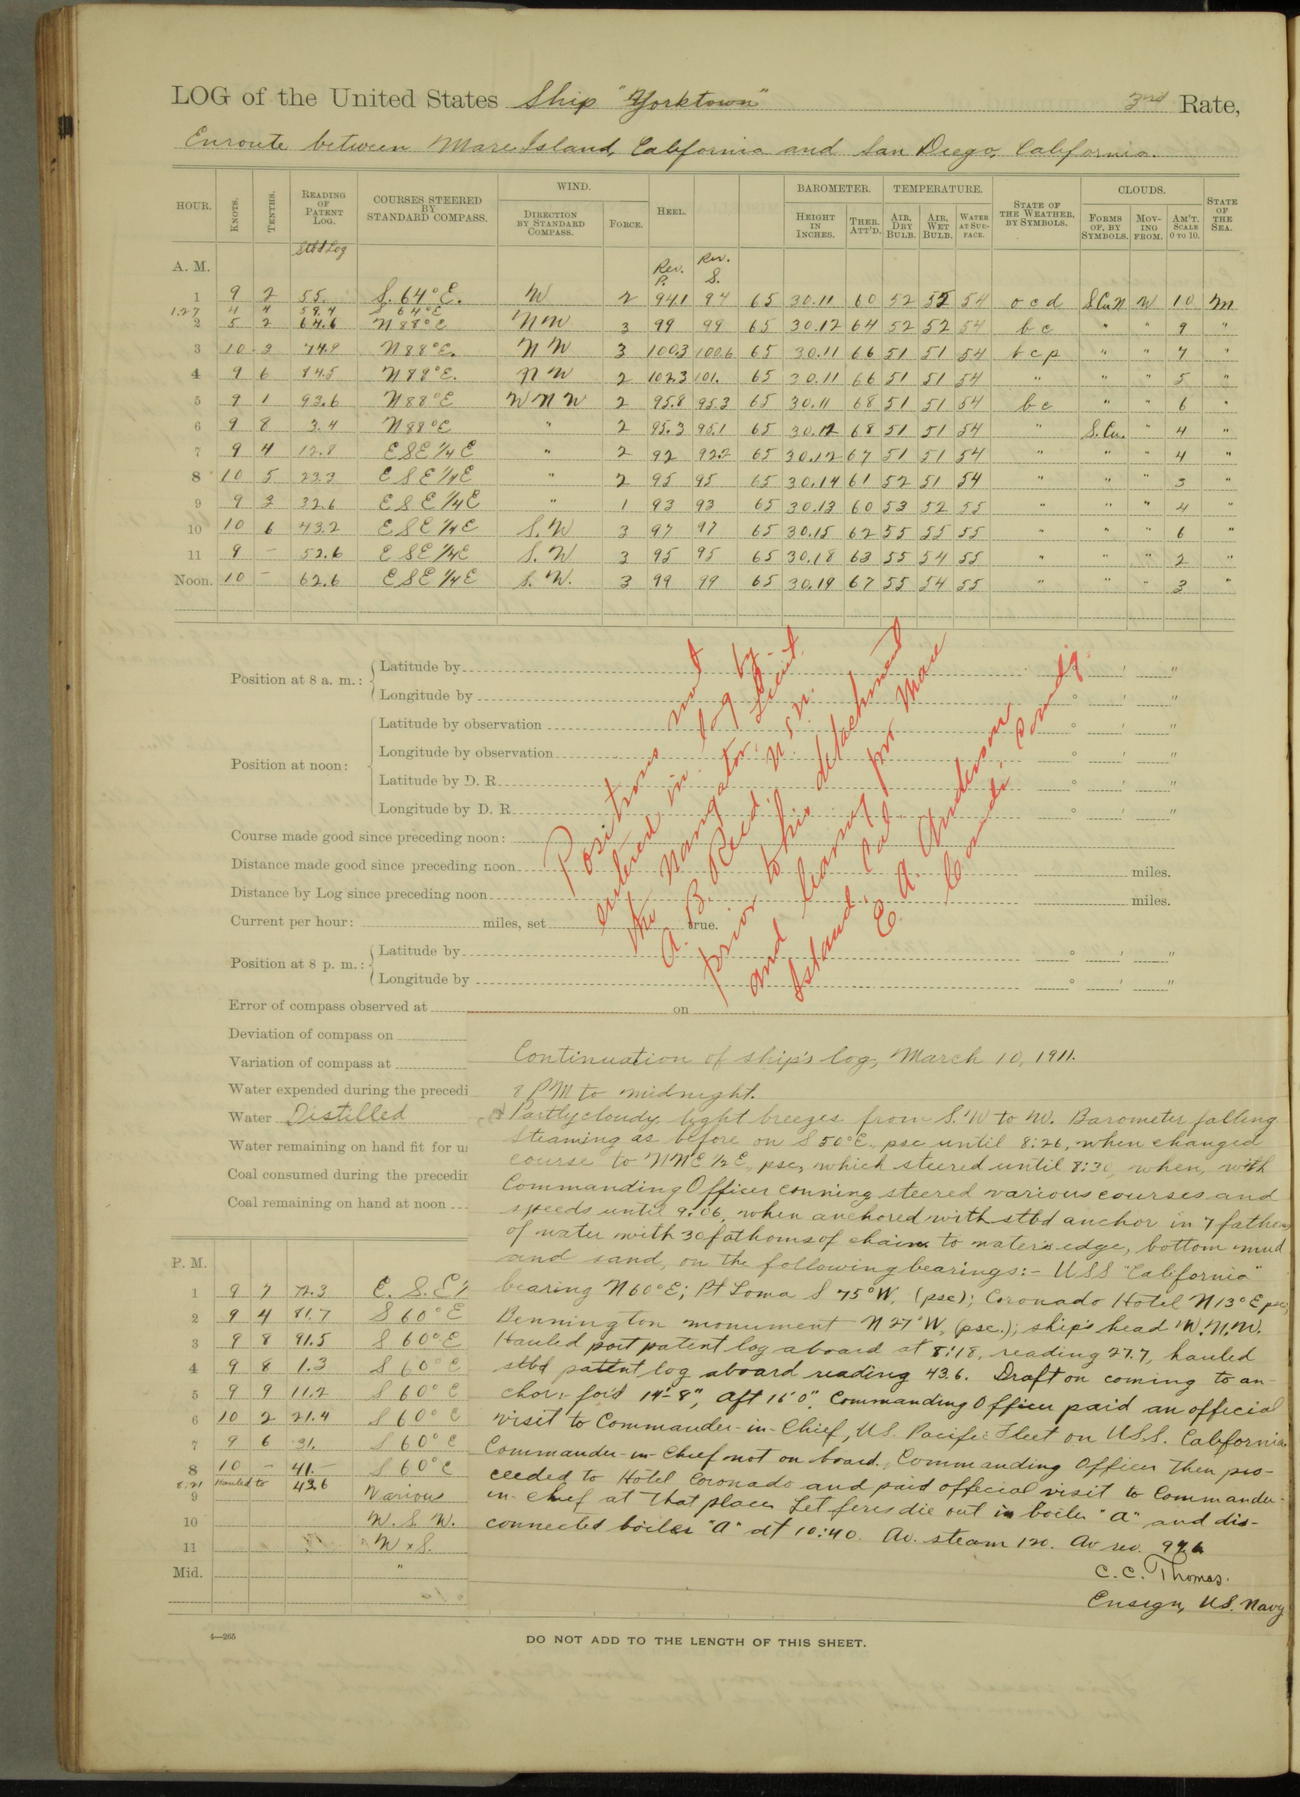 LOG of the United States Ship "Yorktown" 3rd Rate,
Enroute between Mare Island, California and San Diego, California.
HOUR. KNOTS. TENTHS. READING OF PATENT LOG. COURSES STEERED BY STANDARD COMPASS. WIND. DIRECTION BY STANDARD COMPASS. FORCE. HEEL. BAROMETER. HEIGHT IN INCHES. THER. ATT'D. TEMPERATURE. AIR, DRY BULB. AIR, WET BULB. WATER AT SURFACE. STATE OF THE WEATHER, BY SYMBOLS. CLOUDS. FORMS OF, BY SYMBOLS. MOVING FROM. AM'T. SCALE 0 TO 10. STATE OF THE SEA.
Stbd Log
A. M. Rev. P. Rev. S.
1 9 2 55. S. 64° E. W 2 94.1 97 65 30.11 60 52 52 54 o c d S.Cu.N W 10 M
1.27 4 4 59.4 S 64° E
2 5 2 64.6 N 88° E NW 3 99 99 65 30.12 64 52 52 54 b c " " 9 "
3 10 3 74.9 N 88° E. NW 3 100.3 100.6 65 30.11 66 51 51 54 b c p " " 7 "
4 9 6 84.5 N 88° E. NW 2 102.3 101. 65 30.11 66 51 51 54 " " " 5 "
5 9 1 93.6 N 88° E WNW 2 95.8 95.3 65 30.11 68 51 51 54 b c " " 6 "
6 9 8 3.4 N 88° E " 2 95.3 95.1 65 30.12 68 51 51 54 " S.Cu. " 4 "
7 9 4 12.8 ESE 1/4 E " 2 92 92.2 65 30.12 67 51 51 54 " " " 4 "
8 10 5 23.3 ESE 1/4 E " 2 95 95 65 30.14 61 52 51 54 " " " 3 "
9 9 3 32.6 ESE 1/4 E " 1 93 93 65 30.13 60 53 52 55 " " " 4 "
10 10 6 43.2 ESE 1/4 E S.W 3 97 97 65 30.15 62 55 55 55 " " " 6 "
11 9 - 52.6 ESE 1/4 E S.W 3 95 95 65 30.18 63 55 54 55 " " " 2 "
Noon. 10 - 62.6 ESE 1/4 E S.W. 3 99 99 65 30.19 67 55 54 55 " " " 3 "
Position at 8 a. m.: Latitude by ° ′ ″
Longitude by ° ′ ″
Position at noon: Latitude by observation ° ′ ″
Longitude by observation ° ′ ″
Latitude by D. R. ° ′ ″
Longitude by D. R. ° ′ ″
Course made good since preceding noon:
Distance made good since preceding noon miles.
Distance by Log since preceding noon miles.
Current per hour: miles, set true.
Position at 8 p. m.: Latitude by ° ′ ″
Longitude by ° ′ ″
Error of compass observed at on
Deviation of compass on
Variation of compass at
Water expended during the precedi
Water Distilled
Water remaining on hand fit for u
Coal consumed during the precedin
Coal remaining on hand at noon
Positions not
entered in log by
the navigator, Lieut.
A. B. Reed, U.S.N.
prior to his detachment
and leaving for Mare
Island, Cal.
E. A. Anderson
Comdr. Comdg.
Continuation of ship's log, March 10, 1911.
8 PM to midnight.
Partly cloudy, light breezes from S.W to W. Barometer falling
Steaming as before on S 50° E. psc until 8:26, when changed
course to NNE 1/2 E, psc, which steered until 8:30, when, with
Commanding Officer conning steered various courses and
speeds until 9:06, when anchored with stbd anchor in 7 fathoms
of water with 30 fathoms of chain to water's edge, bottom mud
and sand, on the following bearings:- USS "California"
bearing N 60° E; Pt Loma S 75° W, (psc); Coronado Hotel N 13° E psc;
Bennington monument N 27° W, (psc.); ship's head W.N.W.
Hauled port patent log aboard at 8:18, reading 27.7, hauled
stbd patent log aboard reading 43.6. Draft on coming to an-
chor:- for'd 14'-8", aft 16'0". Commanding Officer paid an official
visit to Commander-in-Chief, U.S. Pacific Fleet on U.S.S. California
Commander-in-Chief not on board. Commanding Officer then pro-
ceeded to Hotel Coronado and paid official visit to Commander-
in-Chief at that place. Let fires die out in boiler "A" and dis-
connected boiler "A" at 10:40. Av. steam 120. Av rev. 97.6
C. C. Thomas.
Ensign, U.S. Navy
P. M.
1 9 7 72.3 E. S. E
2 9 4 81.7 S 60° E
3 9 8 91.5 S 60° E
4 9 8 1.3 S 60° E
5 9 9 11.2 S 60° E
6 10 2 21.4 S 60° E
7 9 6 31. S 60° E
8 10 - 41.- S 60° E
8.21 Hauled to 43.6
9 Various
10 W. S. W.
11 W x S.
Mid. "
4—265
DO NOT ADD TO THE LENGTH OF THIS SHEET.